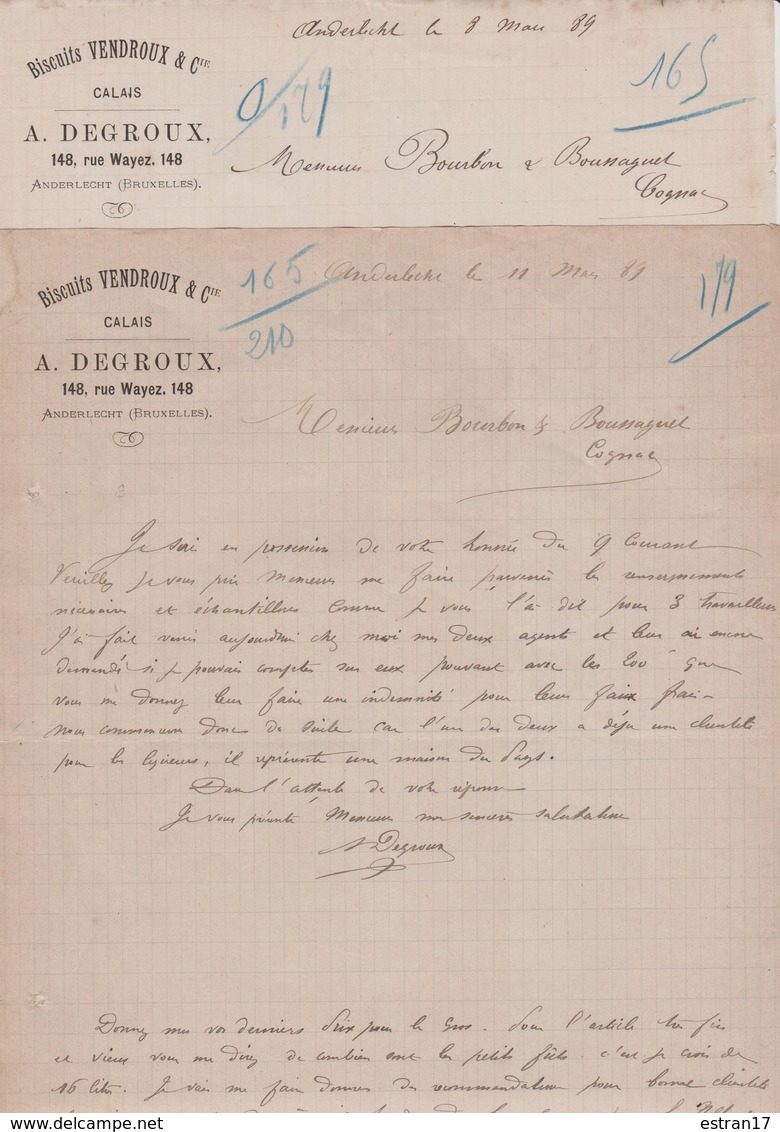 Biscuits VENDROUX & CIE
CALAIS
A. DEGROUX,
148, rue Wayez. 148
ANDERLECHT (BRUXELLES).
Anderlecht le 8 Mars 89
0/179
165
Messieurs Bourbon & Boussaguet
Cognac
Biscuits VENDROUX & CIE
CALAIS
A. DEGROUX,
148, rue Wayez. 148
ANDERLECHT (BRUXELLES).
165
210
Anderlecht le 11 Mars 89
179
Messieurs Bourbon & Boussaguet
Cognac
Je suis en possession de votre honnée du 9 Courant
Veuillez je vous prie Messieurs me faire parvenir les renseignements
nécessaires et échantillons comme je vous l'ai dit pour 3 travailleurs
J'ai fait venir aujourdhui chez moi mes deux agents et leur ai encore
demandé si je pouvais compter sur eux pouvant avec les 200 que
vous me donnez leur faire une indemnité pour leurs faux frais
nous commencerons donc de suite car l'un des deux a déja une clientele
pour les liqueurs, il représente une maison du Pays.
Dans l'attente de votre réponse
Je vous présente Messieurs mes sincères salutations
A Degroux
Donnez moi vos derniers Prix pour le Gros. Pour l'article très fin
et vieux vous me direz de combien sont les petits fûts. c'est je crois de
16 litres. Je vais me faire donner des recommandations pour bonne clientele
estran17
www.delcampe.net